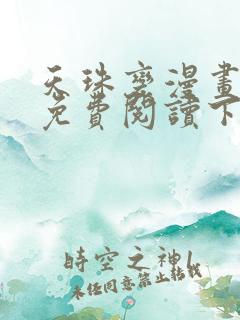 天珠變漫畫
免費閱讀下
時空之神1
未經同意禁止轉載